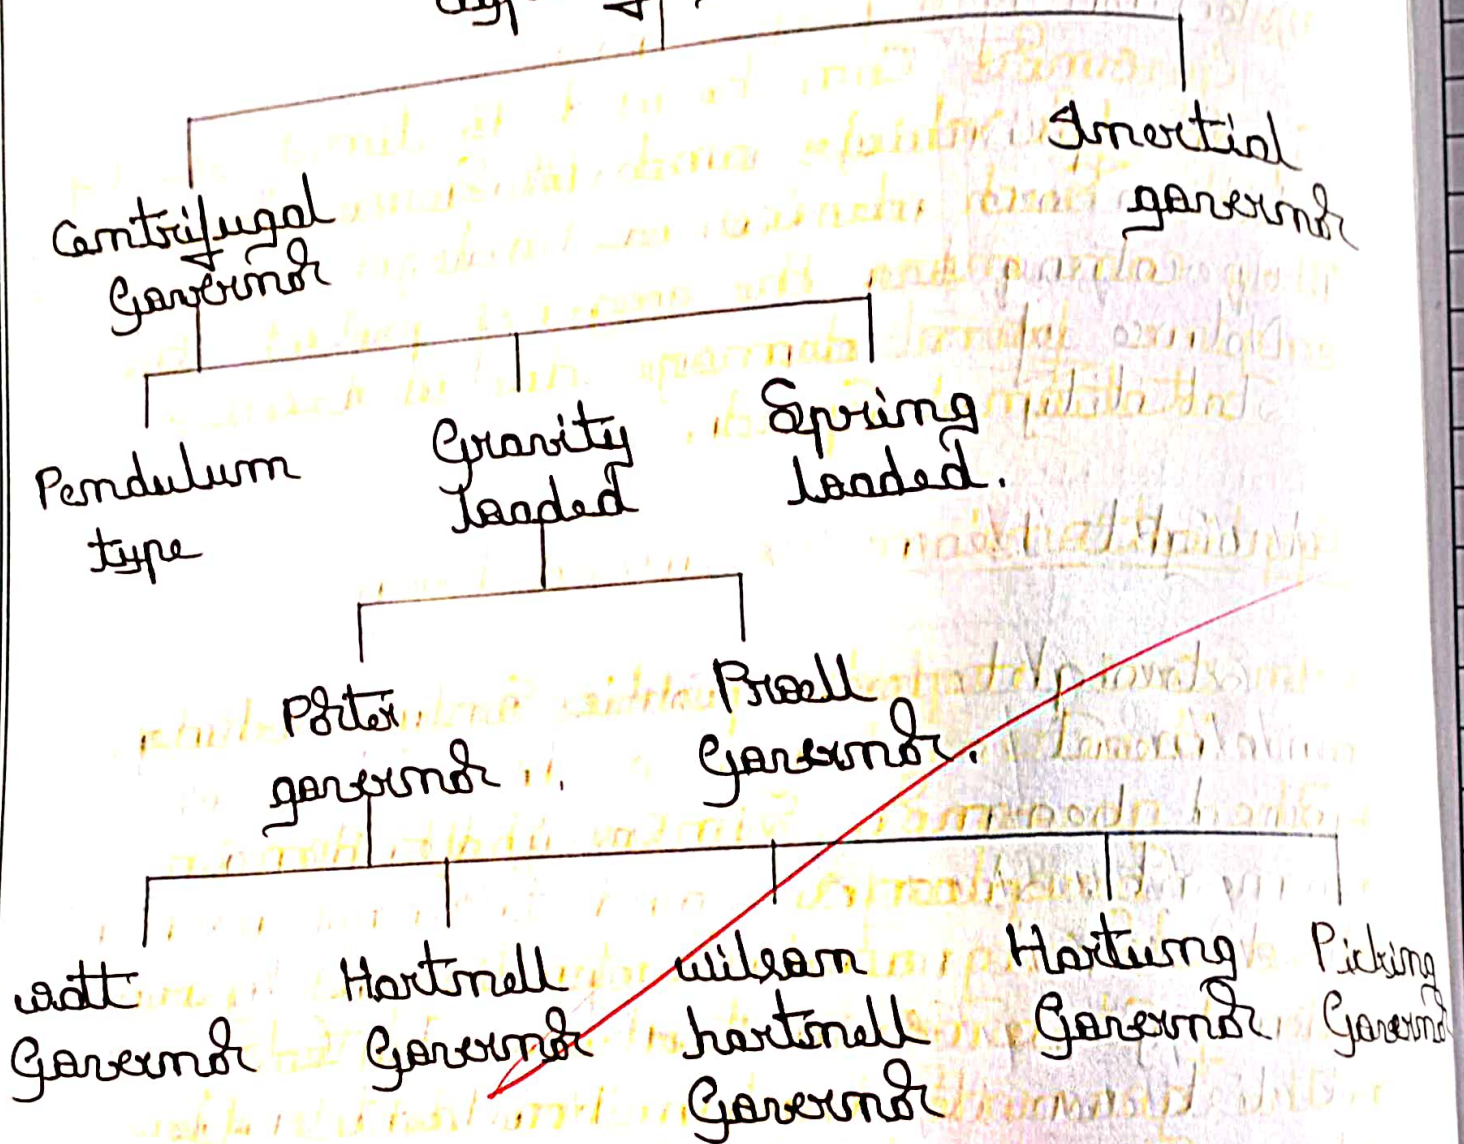 Centrifugal
Governor
Inertial
governor
Pendulum
type
Gravity
loaded
Spring
loaded.
Porter
governor
Proell
Governor.
watt
Governor
Hartnell
Governor
wilson
hartnell
Governor
Hartung
Governor
Picking
Governo